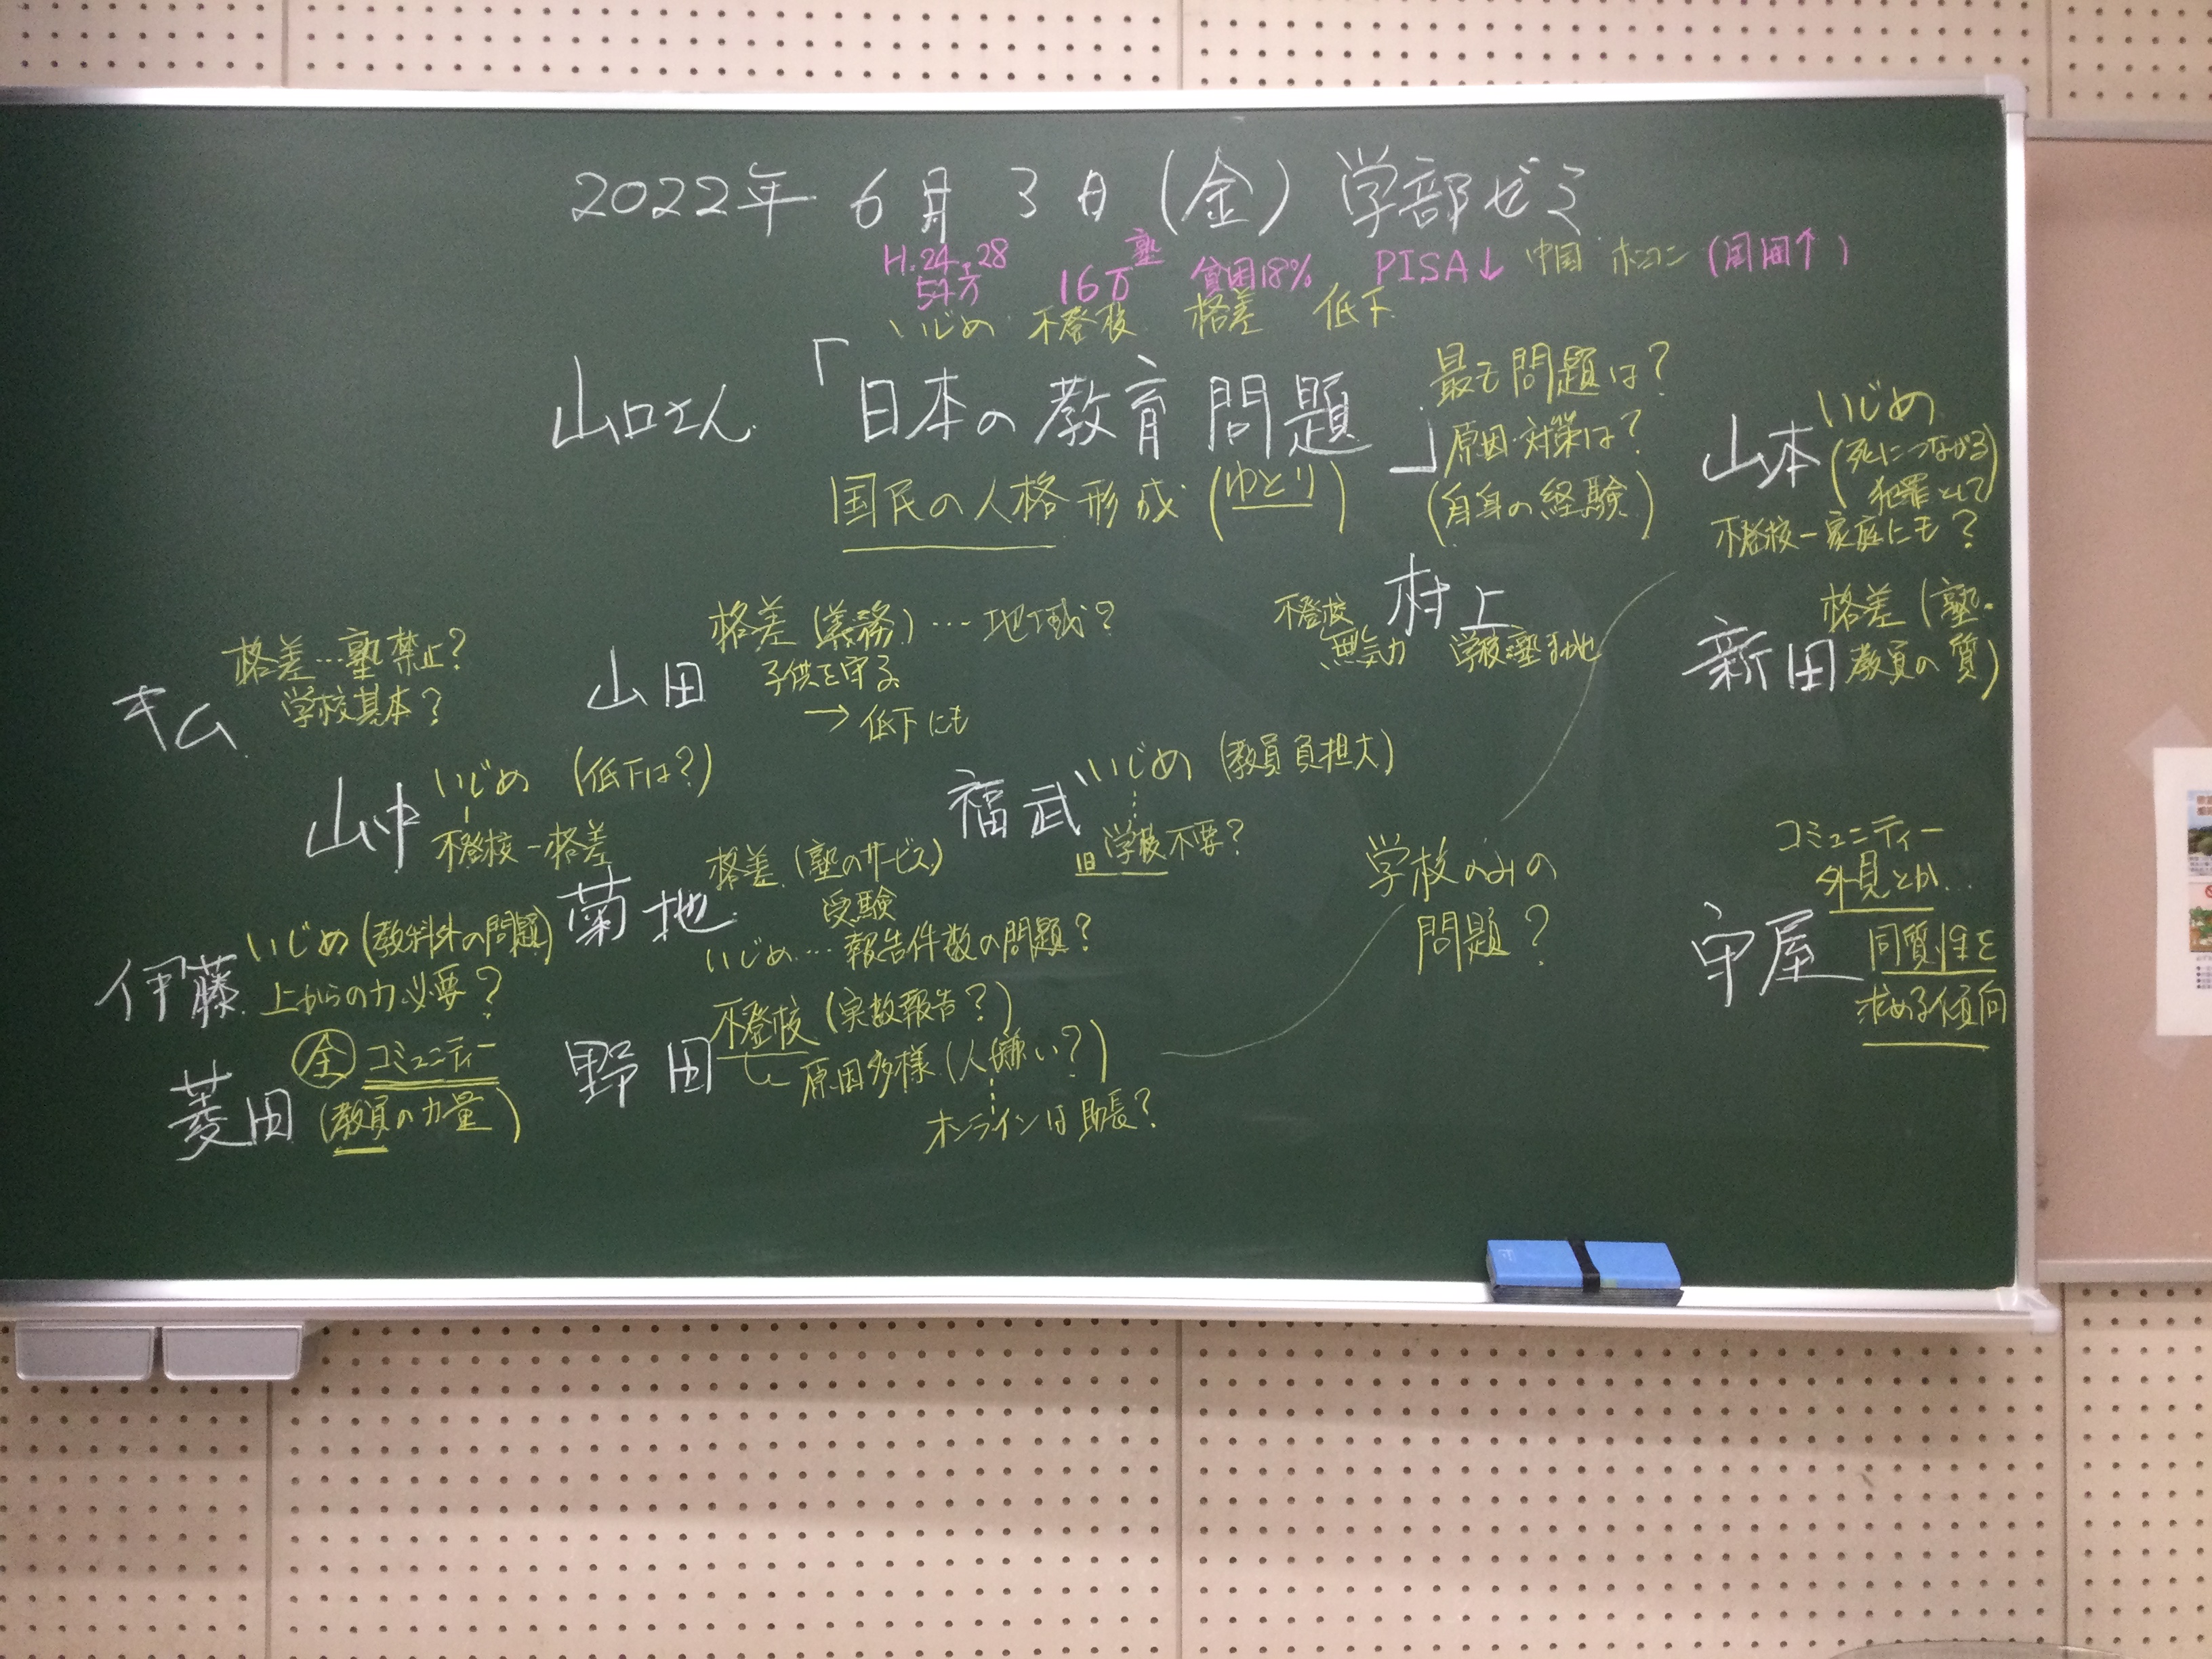 2022年 6月 3日 (金) 学部ゼミ
H.24 28 塾
54万 16万 貧困18% PISA↓ 中国 ホンコン (国 ↑)
いじめ 不登校 格差 低下
山口さん 「日本の教育問題」
国民の人格形成 (ゆとり)
最も問題は?
原因・対策は?
(自身の経験)
山本 いじめ
(死につながる
犯罪として)
不登校ー家庭にも?
村上 不登校
無気力
学校 塾
新田 格差 (塾・
教員の質)
キム 格差…塾禁止?
学校基本?
山田 格差 (義務) … 地域?
子供を守る
→ 低下にも
山中 いじめ (低下は?)
不登校ー格差
福武 いじめ (教員負担大)
旧学校不要?
菊地 格差 (塾のサービス)
受験
いじめ… 報告件数の問題?
学校のみの
問題?
守屋 コミュニティー
外見とか…
同質性を
求める傾向
伊藤 いじめ (教科外の問題)
上からの力必要?
野田 不登校 (実数報告?)
原因多様 (人嫌い?)
オンラインは助長?
菱田 全 コミュニティー
(教員の力量)